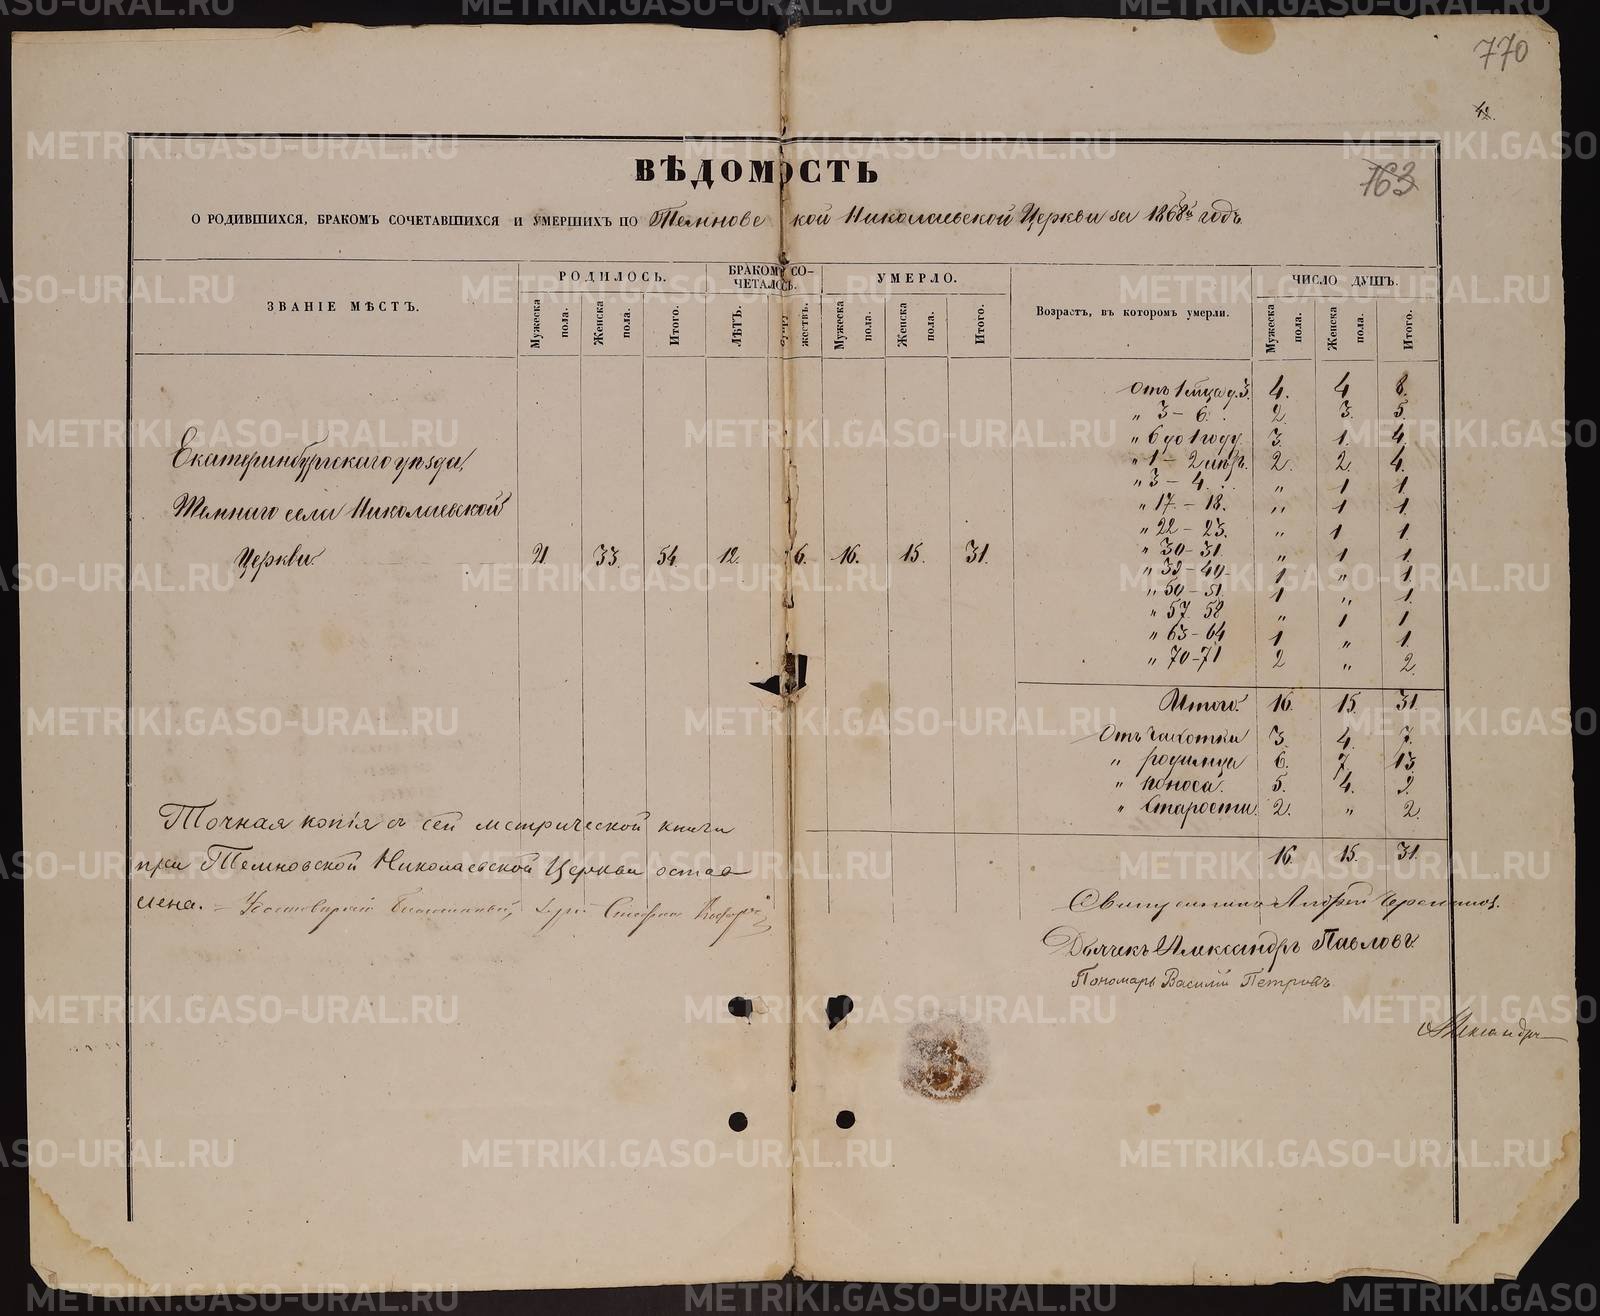 770
42.
763
ВѢДОМОСТЬ
О РОДИВШИХСЯ, БРАКОМЪ СОЧЕТАВШИХСЯ И УМЕРШИХЪ ПО Темновс кой Николаевской Церкви за 1868й годъ.
ЗВАНІЕ МѢСТЪ. РОДИЛОСЬ. БРАКОМЪ СО-ЧЕТАЛОСЬ. УМЕРЛО. Возрастъ, въ которомъ умерли. ЧИСЛО ДУШЪ.
Мужеска пола. Женска пола. Итого. ЛѢТЪ. жествъ. Мужеска пола. Женска пола. Итого. Мужеска пола. Женска пола. Итого.
Отъ 1 мѣца д. 3. 4. 4 8.
„ 3 – 6. 2. 3. 5.
„ 6 до 1 году. 3. 1. 4.
„ 1 – 2 2. 2. 4.
„ 3 – 4. „ 1 1.
„ 17 – 18. „ 1 1.
„ 22 – 23. „ 1 1.
„ 30 – 31. „ 1 1.
„ 39 – 40. 1 „ 1.
„ 50 – 51. 1 „ 1.
„ 57 58 „ 1 1
„ 63 – 64 1 „ 1.
„ 70 – 71 2 „ 2.
Екатеринбургскаго уѣзда,
Темнаго села Николаевской
Церкви. 21. 33. 54. 12. 6. 16. 15. 31.
Итого. 16. 15. 31.
Отъ чахотки 3. 4. 7.
„ родимца 6. 7. 13.
„ поноса. 5. 4. 9.
„ Старости. 2. „ 2.
16. 15. 31.
Точная копія съ сей метрической книги
при Темновской Николаевской Церкви остав
лена.
Священникъ Андрей Черепановъ.
Дьячекъ Александръ Павловъ.
Пономарь Василій Петровъ.
Александръ
METRIKI.GASO-URAL.RU